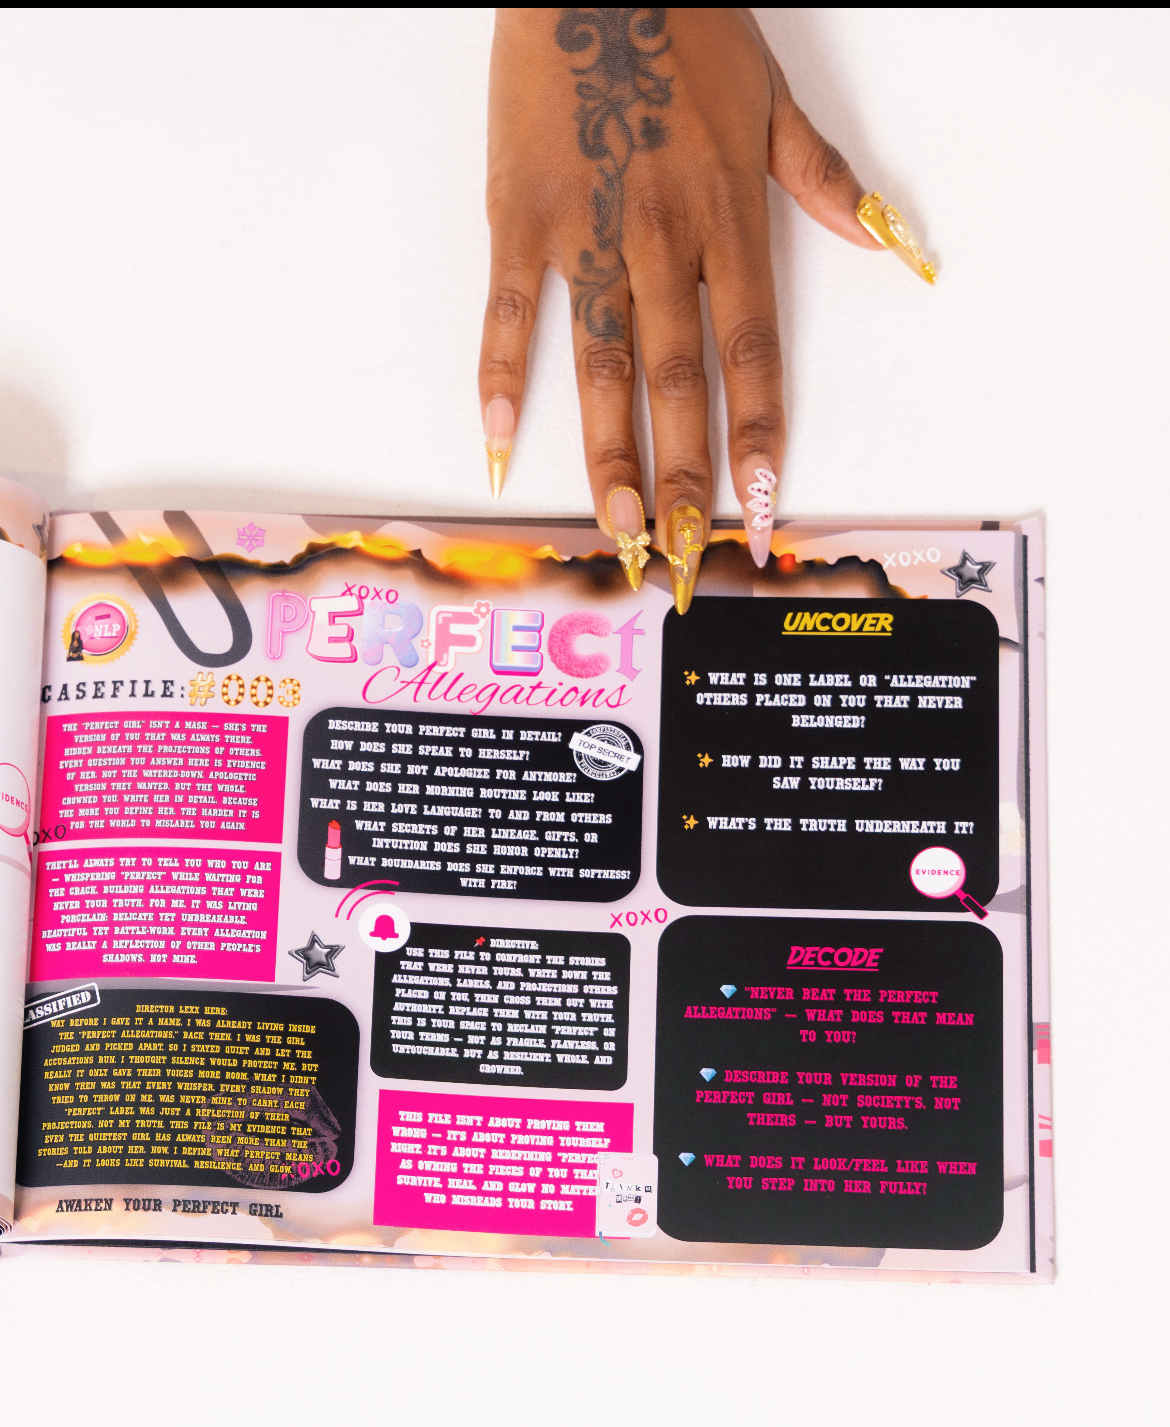 XOXO
XOXO
NLP
PERFECt
Allegations
CASEFILE:#003
THE "PERFECT GIRL" ISN'T A MASK — SHE'S THE
VERSION OF YOU THAT WAS ALWAYS THERE,
HIDDEN BENEATH THE PROJECTIONS OF OTHERS.
EVERY QUESTION YOU ANSWER HERE IS EVIDENCE
OF HER. NOT THE WATERED-DOWN, APOLOGETIC
VERSION THEY WANTED, BUT THE WHOLE,
CROWNED YOU. WRITE HER IN DETAIL, BECAUSE
THE MORE YOU DEFINE HER, THE HARDER IT IS
FOR THE WORLD TO MISLABEL YOU AGAIN.
IDENCE
OXO
THEY'LL ALWAYS TRY TO TELL YOU WHO YOU ARE
— WHISPERING "PERFECT" WHILE WAITING FOR
THE CRACK, BUILDING ALLEGATIONS THAT WERE
NEVER YOUR TRUTH. FOR ME, IT WAS LIVING
PORCELAIN: DELICATE YET UNBREAKABLE,
BEAUTIFUL YET BATTLE-WORN. EVERY ALLEGATION
WAS REALLY A REFLECTION OF OTHER PEOPLE'S
SHADOWS, NOT MINE.
ASSIFIED
DIRECTOR LEXX HERE:
WAY BEFORE I GAVE IT A NAME, I WAS ALREADY LIVING INSIDE
THE "PERFECT ALLEGATIONS." BACK THEN, I WAS THE GIRL
JUDGED AND PICKED APART, SO I STAYED QUIET AND LET THE
ACCUSATIONS RUN. I THOUGHT SILENCE WOULD PROTECT ME, BUT
REALLY IT ONLY GAVE THEIR VOICES MORE ROOM. WHAT I DIDN'T
KNOW THEN WAS THAT EVERY WHISPER, EVERY SHADOW THEY
TRIED TO THROW ON ME, WAS NEVER MINE TO CARRY. EACH
"PERFECT" LABEL WAS JUST A REFLECTION OF THEIR
PROJECTIONS, NOT MY TRUTH. THIS FILE IS MY EVIDENCE THAT
EVEN THE QUIETEST GIRL HAS ALWAYS BEEN MORE THAN THE
STORIES TOLD ABOUT HER. NOW, I DEFINE WHAT PERFECT MEANS
—AND IT LOOKS LIKE SURVIVAL, RESILIENCE, AND GLOW.
XOXO
AWAKEN YOUR PERFECT GIRL
DESCRIBE YOUR PERFECT GIRL IN DETAIL?
TOP SECRET
HOW DOES SHE SPEAK TO HERSELF?
WHAT DOES SHE NOT APOLOGIZE FOR ANYMORE?
WHAT DOES HER MORNING ROUTINE LOOK LIKE?
WHAT IS HER LOVE LANGUAGE? TO AND FROM OTHERS
WHAT SECRETS OF HER LINEAGE, GIFTS, OR
INTUITION DOES SHE HONOR OPENLY?
WHAT BOUNDARIES DOES SHE ENFORCE WITH SOFTNESS?
WITH FIRE?
XOXO
DIRECTIVE:
USE THIS FILE TO CONFRONT THE STORIES
THAT WERE NEVER YOURS. WRITE DOWN THE
ALLEGATIONS, LABELS, AND PROJECTIONS OTHERS
PLACED ON YOU, THEN CROSS THEM OUT WITH
AUTHORITY. REPLACE THEM WITH YOUR TRUTH.
THIS IS YOUR SPACE TO RECLAIM "PERFECT" ON
YOUR TERMS — NOT AS FRAGILE, FLAWLESS, OR
UNTOUCHABLE, BUT AS RESILIENT, WHOLE, AND
CROWNED.
THIS FILE ISN'T ABOUT PROVING THEM
WRONG — IT'S ABOUT PROVING YOURSELF
RIGHT. IT'S ABOUT REDEFINING "PERFEC
AS OWNING THE PIECES OF YOU THAT
SURVIVE, HEAL, AND GLOW NO MATTER
WHO MISREADS YOUR STORY.
THANK U
UNCOVER
✨ WHAT IS ONE LABEL OR "ALLEGATION"
OTHERS PLACED ON YOU THAT NEVER
BELONGED?
✨ HOW DID IT SHAPE THE WAY YOU
SAW YOURSELF?
✨ WHAT'S THE TRUTH UNDERNEATH IT?
EVIDENCE
DECODE
💎 "NEVER BEAT THE PERFECT
ALLEGATIONS" — WHAT DOES THAT MEAN
TO YOU?
💎 DESCRIBE YOUR VERSION OF THE
PERFECT GIRL — NOT SOCIETY'S, NOT
THEIRS — BUT YOURS.
💎 WHAT DOES IT LOOK/FEEL LIKE WHEN
YOU STEP INTO HER FULLY?